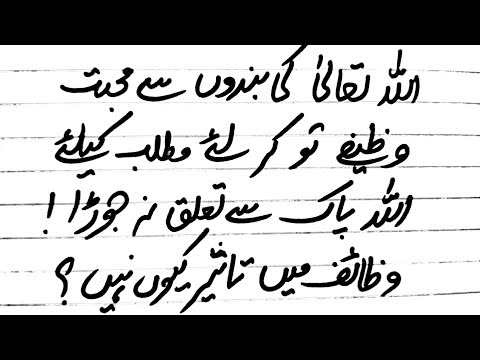 اللہ تعالیٰ کی بندوں سے محبت
وظیفے تو کر لئے مطلب کیلئے
اللہ پاک سے تعلق نہ جوڑا!
وظائف میں تاثیر کیوں نہیں؟